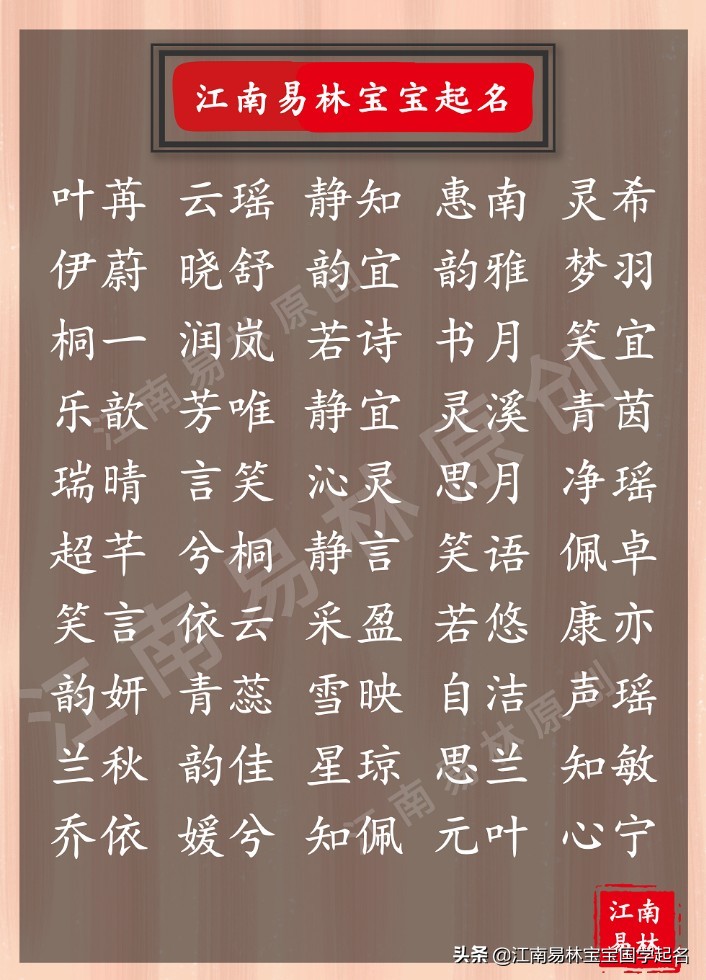 江南易林宝宝起名
叶苒 云瑶 静知 惠南 灵希
伊蔚 晓舒 韵宜 韵雅 梦羽
桐一 润岚 若诗 书月 笑宜
乐歆 芳唯 静宜 灵溪 青茵
瑞晴 言笑 沁灵 思月 净瑶
超芊 兮桐 静言 笑语 佩卓
笑言 依云 采盈 若悠 康亦
韵妍 青蕊 雪映 自洁 声瑶
兰秋 韵佳 星琼 思兰 知敏
乔依 媛兮 知佩 元叶 心宁
江南易林原创
江南易林原创
江南易林原创
江南
易林
头条 @江南易林宝宝国学起名